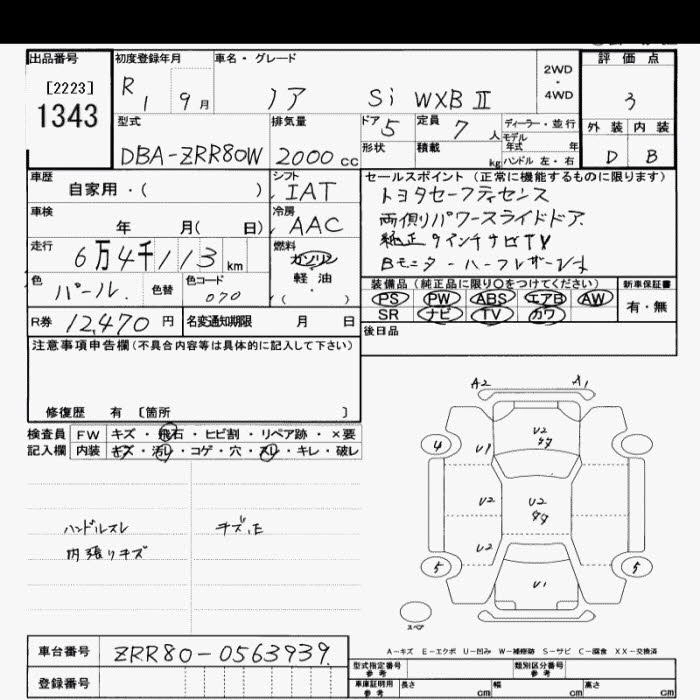 出品番号 初度登録年月 車名・グレード 評価点
[2223] R1 9月 ノア Si WXB Ⅱ 2WD・4WD 3
1343
型式 排気量 ドア 5 定員 7人 ディーラー・並行 外装 内装
モデル年式 年
DBA-ZRR80W 2000cc 形状 積載 kg ハンドル 左・右 D B
車歴 シフト セールスポイント(正常に機能するものに限ります)
自家用・( ) IAT トヨタセーフティセンス
車検 冷房 両側パワースライドドア
年 月( 日) AAC 純正9インチナビTV
走行 燃料 Bモニター・ハーフレザー
6万4千113km ガソリン
軽油
色 色替 色コード ・( )
パール. 070
装備品(純正品に限り○をつけてください) 新車保証書
PS PW ABS エアB AW 有・無
SR ナビ TV カワ
R券 12,470円 名変通知期限 月 日 後日品
注意事項申告欄(不具合内容等は具体的に記入して下さい)
修復歴 有 〔箇所 〕
検査員記入欄 FW キズ・飛石・ヒビ割・リペア跡・×要
内装 キズ・汚レ・コゲ・穴・スレ・キレ・破レ
A2 A1
U2
4 U1
U2 U2
U2
5 5
U1
スペア
ハンドルスレ
内張りキズ
A-キズ E-エクボ U-凹み W-補修跡 S-サビ C-腐食 XX-交換済
車台番号 ZRR80-0563939.
型式指定番号 参考 類別区分番号 参考
登録番号 車庫証明用 参考 長さ cm 幅 cm 高さ cm